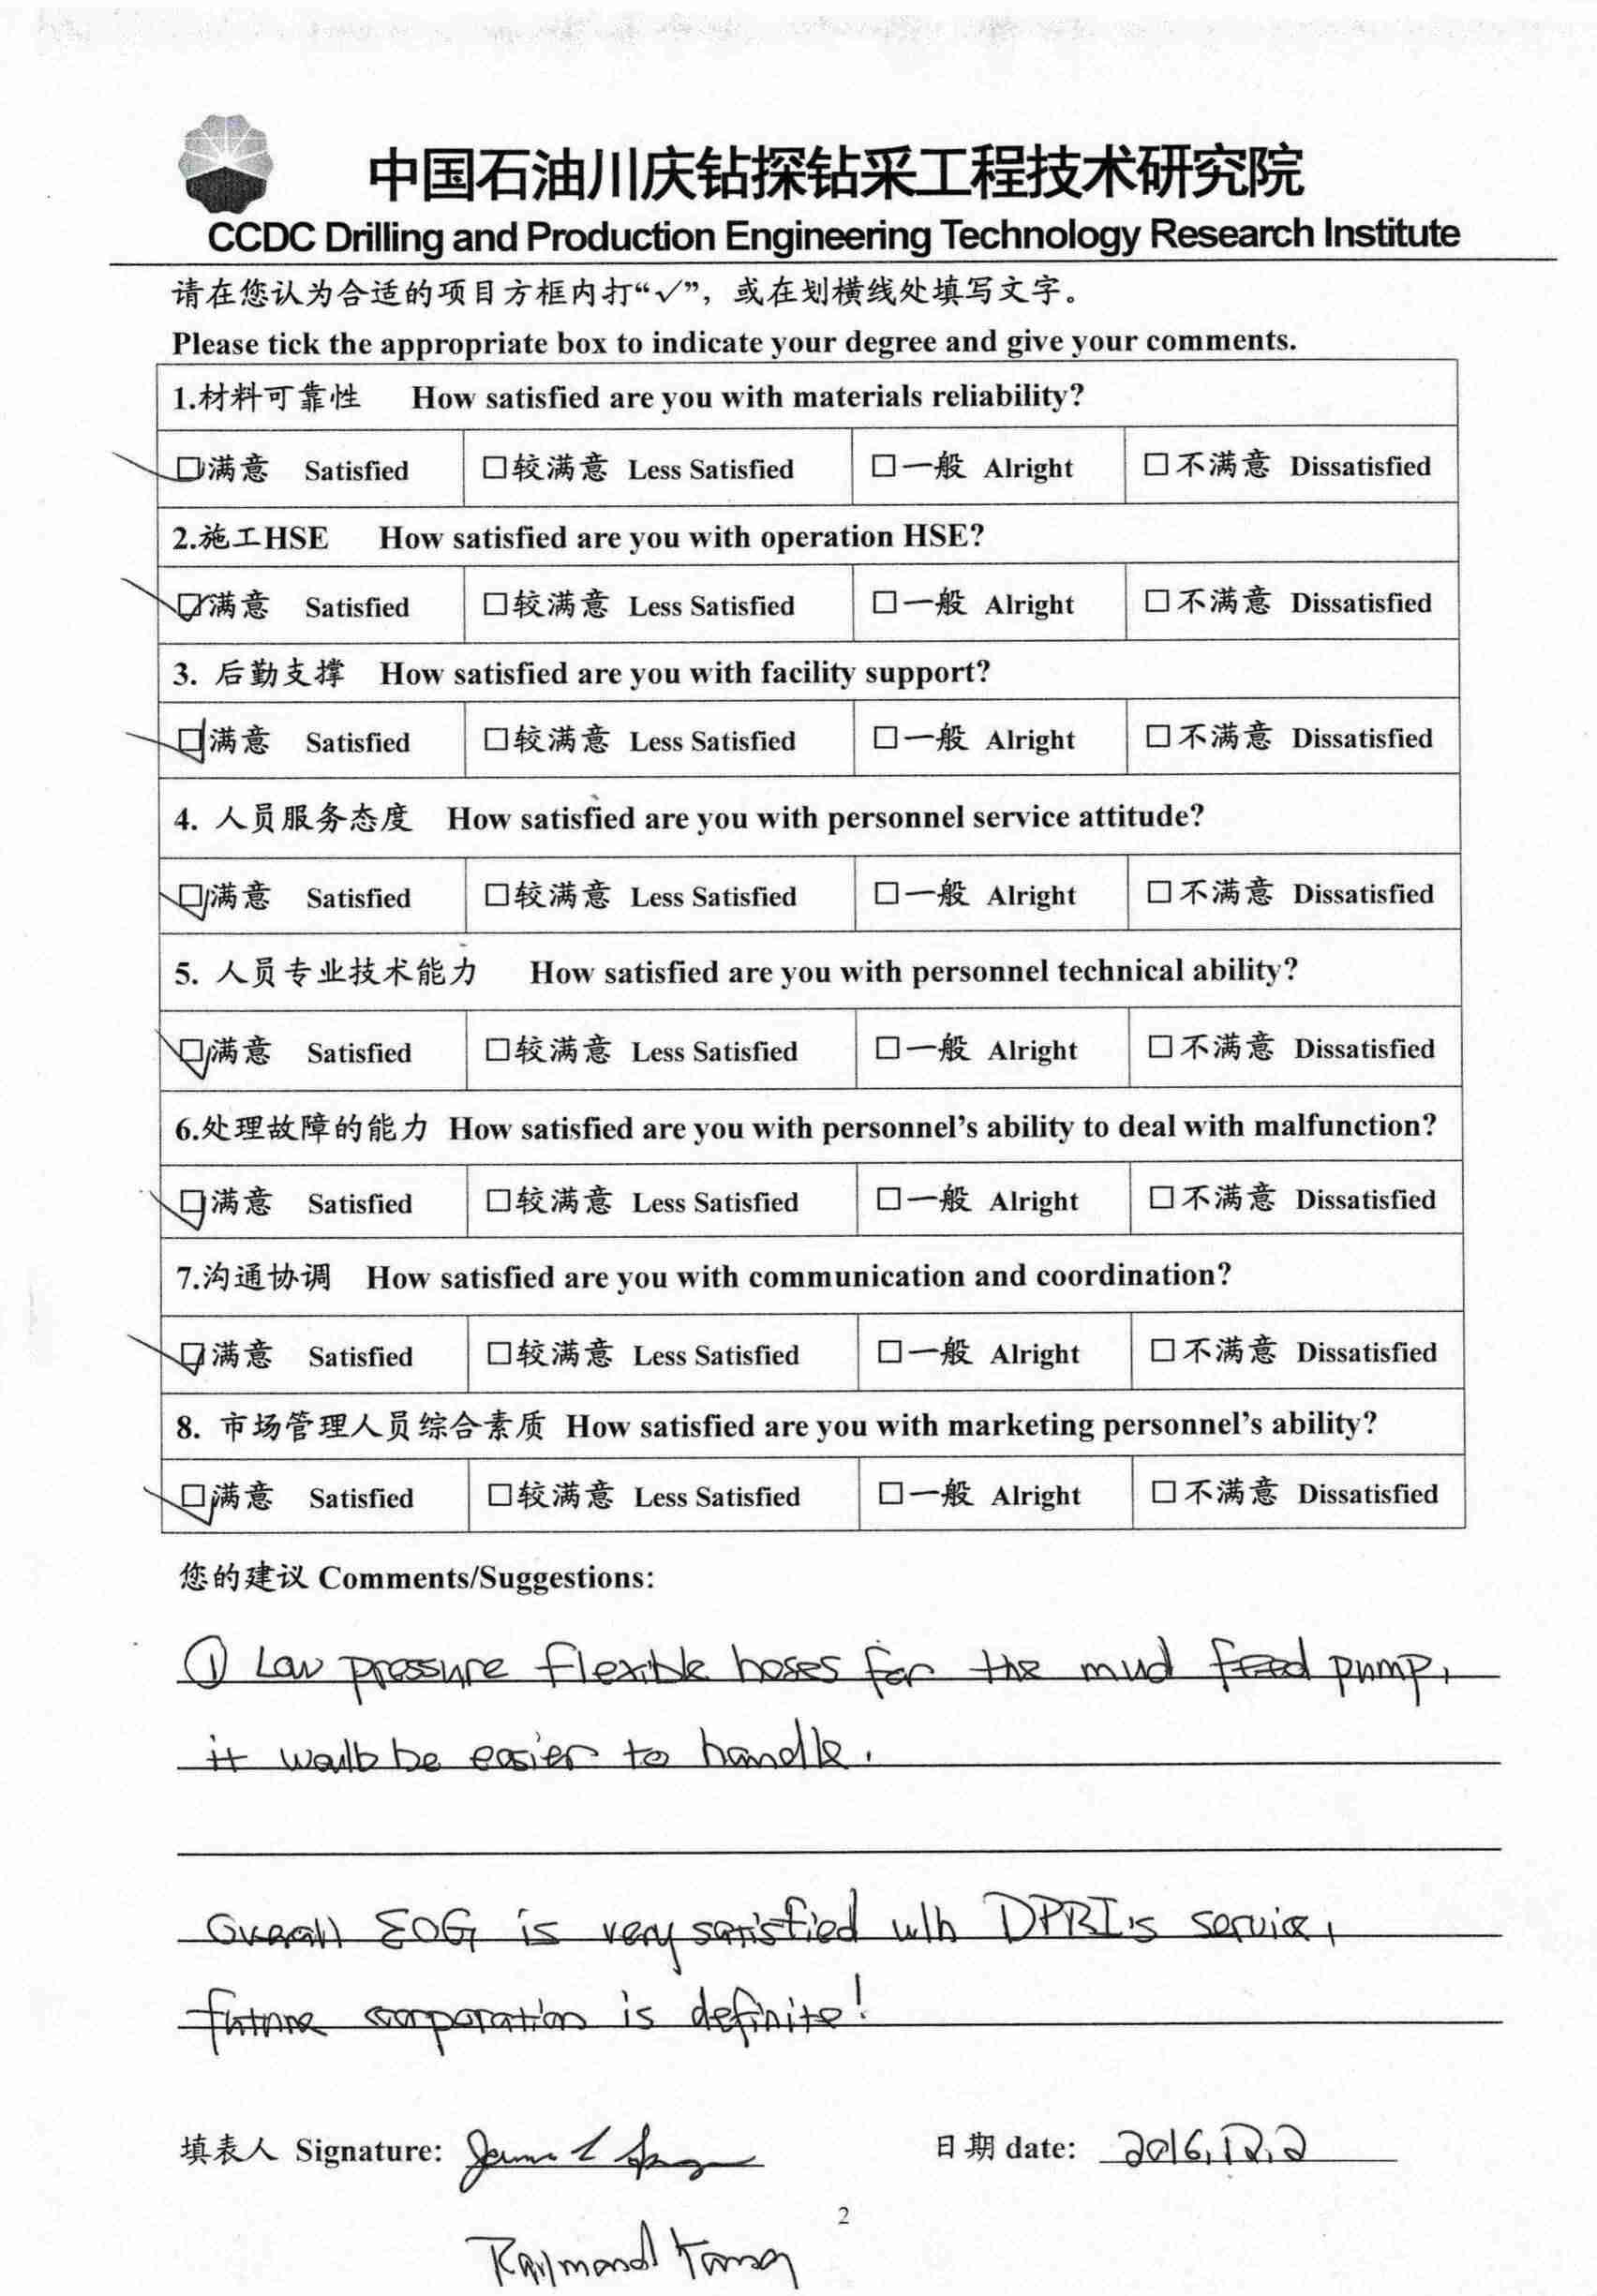 中国石油川庆钻探钻采工程技术研究院
CCDC Drilling and Production Engineering Technology Research Institute
请在您认为合适的项目方框内打“√”，或在划横线处填写文字。
Please tick the appropriate box to indicate your degree and give your comments.
1.材料可靠性 How satisfied are you with materials reliability?
☑满意 Satisfied □较满意 Less Satisfied □一般 Alright □不满意 Dissatisfied
2.施工HSE How satisfied are you with operation HSE?
☑满意 Satisfied □较满意 Less Satisfied □一般 Alright □不满意 Dissatisfied
3. 后勤支撑 How satisfied are you with facility support?
☑满意 Satisfied □较满意 Less Satisfied □一般 Alright □不满意 Dissatisfied
4. 人员服务态度 How satisfied are you with personnel service attitude?
☑满意 Satisfied □较满意 Less Satisfied □一般 Alright □不满意 Dissatisfied
5. 人员专业技术能力 How satisfied are you with personnel technical ability?
☑满意 Satisfied □较满意 Less Satisfied □一般 Alright □不满意 Dissatisfied
6.处理故障的能力 How satisfied are you with personnel's ability to deal with malfunction?
☑满意 Satisfied □较满意 Less Satisfied □一般 Alright □不满意 Dissatisfied
7.沟通协调 How satisfied are you with communication and coordination?
☑满意 Satisfied □较满意 Less Satisfied □一般 Alright □不满意 Dissatisfied
8. 市场管理人员综合素质 How satisfied are you with marketing personnel's ability?
☑满意 Satisfied □较满意 Less Satisfied □一般 Alright □不满意 Dissatisfied
您的建议 Comments/Suggestions:
① Low pressure flexible hoses for the mud feed pump,
it would be easier to handle.
Overall EOG is very satisfied with DPRI's service,
future corporation is definite!
填表人 Signature: 日期 date: 2016.12.2
2
Raymond